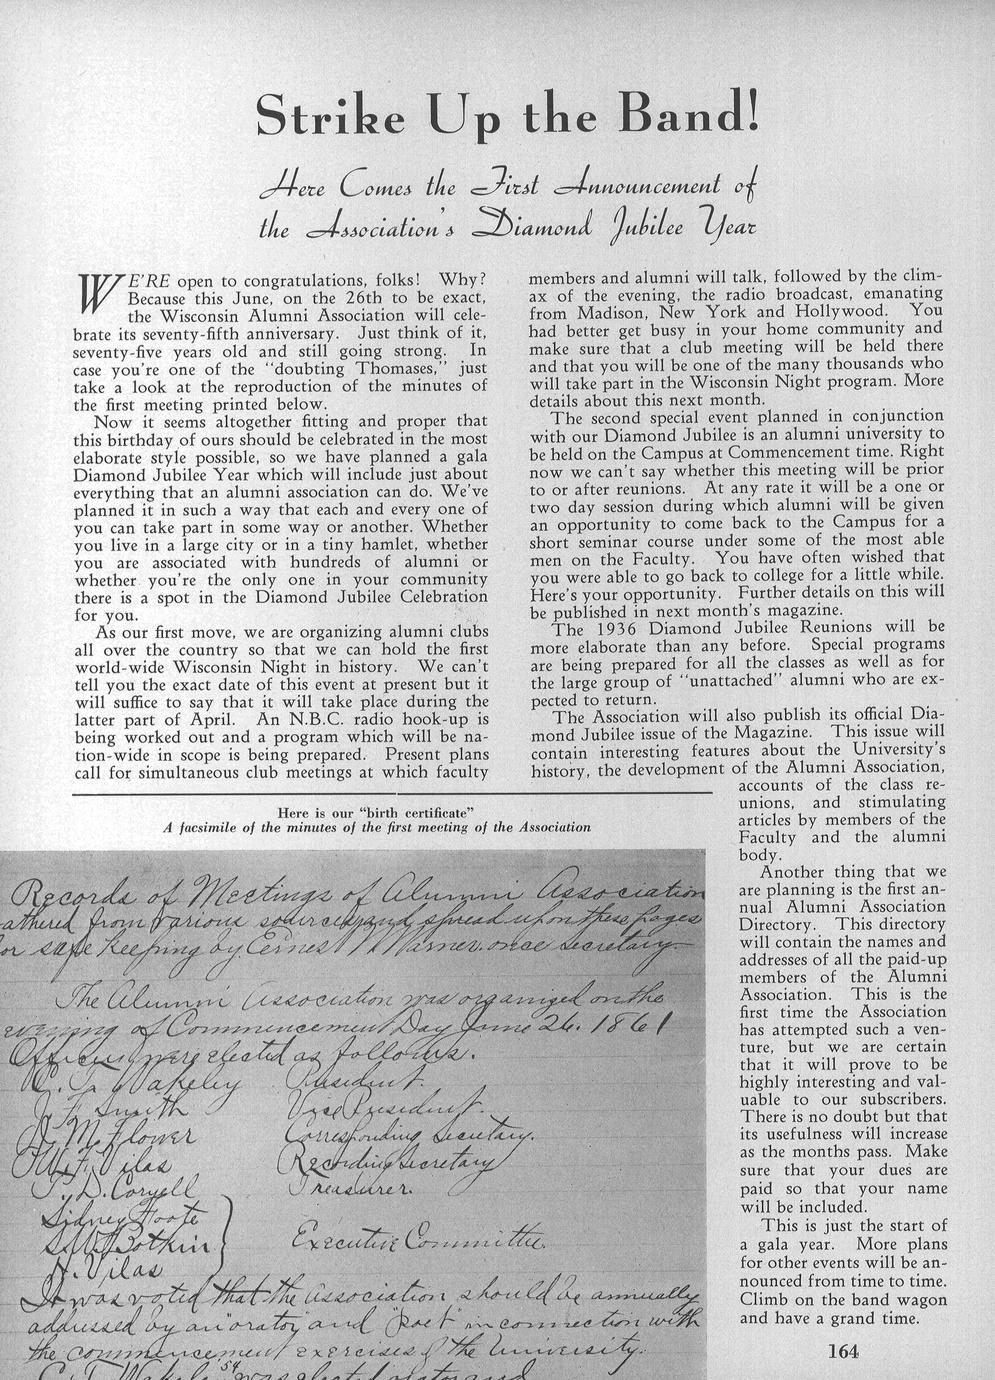 Strike Up the Band!
Here Comes the First Announcement of
the Association's Diamond Jubilee Year
WE'RE open to congratulations, folks! Why?
Because this June, on the 26th to be exact,
the Wisconsin Alumni Association will cele-
brate its seventy-fifth anniversary. Just think of it,
seventy-five years old and still going strong. In
case you're one of the "doubting Thomases," just
take a look at the reproduction of the minutes of
the first meeting printed below.
Now it seems altogether fitting and proper that
this birthday of ours should be celebrated in the most
elaborate style possible, so we have planned a gala
Diamond Jubilee Year which will include just about
everything that an alumni association can do. We've
planned it in such a way that each and every one of
you can take part in some way or another. Whether
you live in a large city or in a tiny hamlet, whether
you are associated with hundreds of alumni or
whether you're the only one in your community
there is a spot in the Diamond Jubilee Celebration
for you.
As our first move, we are organizing alumni clubs
all over the country so that we can hold the first
world-wide Wisconsin Night in history. We can't
tell you the exact date of this event at present but it
will suffice to say that it will take place during the
latter part of April. An N.B.C. radio hook-up is
being worked out and a program which will be na-
tion-wide in scope is being prepared. Present plans
call for simultaneous club meetings at which faculty
members and alumni will talk, followed by the clim-
ax of the evening, the radio broadcast, emanating
from Madison, New York and Hollywood. You
had better get busy in your home community and
make sure that a club meeting will be held there
and that you will be one of the many thousands who
will take part in the Wisconsin Night program. More
details about this next month.
The second special event planned in conjunction
with our Diamond Jubilee is an alumni university to
be held on the Campus at Commencement time. Right
now we can't say whether this meeting will be prior
to or after reunions. At any rate it will be a one or
two day session during which alumni will be given
an opportunity to come back to the Campus for a
short seminar course under some of the most able
men on the Faculty. You have often wished that
you were able to go back to college for a little while.
Here's your opportunity. Further details on this will
be published in next month's magazine.
The 1936 Diamond Jubilee Reunions will be
more elaborate than any before. Special programs
are being prepared for all the classes as well as for
the large group of "unattached" alumni who are ex-
pected to return.
The Association will also publish its official Dia-
mond Jubilee issue of the Magazine. This issue will
contain interesting features about the University's
history, the development of the Alumni Association,
accounts of the class re-
unions, and stimulating
articles by members of the
Faculty and the alumni
body.
Another thing that we
are planning is the first an-
nual Alumni Association
Directory. This directory
will contain the names and
addresses of all the paid-up
members of the Alumni
Association. This is the
first time the Association
has attempted such a ven-
ture, but we are certain
that it will prove to be
highly interesting and val-
uable to our subscribers.
There is no doubt but that
its usefulness will increase
as the months pass. Make
sure that your dues are
paid so that your name
will be included.
This is just the start of
a gala year. More plans
for other events will be an-
nounced from time to time.
Climb on the band wagon
and have a grand time.
Here is our "birth certificate"
A facsimile of the minutes of the first meeting of the Association
Records of Meetings of Alumni Association
athered from various sources and spread upon these pages
or safe keeping by Ernest Warner once secretary
The Alumni Association was organized on the
evening of Commencement Day June 26. 1861
Officers were elected as follows.
C. T. Wakeley President.
J. F. Smith Vice President.
J. M. Flower Corresponding Secretary.
W. F. Vilas Recording Secretary
T. D. Coryell Treasurer.
Sidney Foote
S. W. Botkin Executive Committee.
H. Vilas
It was voted that the Association should be annually
addressed by an "orator" and "poet" in connection with
the commencement exercises of the University.
C. T. Wakeley '54 was elected orator and
164